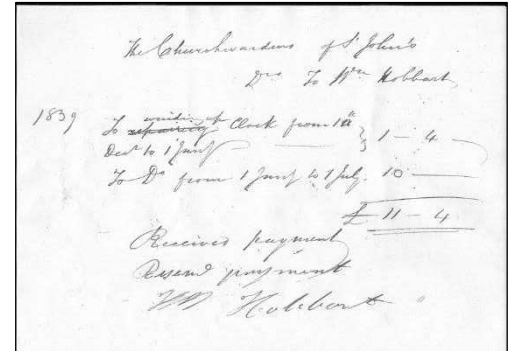 The Churchwardens of St John's
Drs To Wm Hobbart
1839
To winding up Clock from 12th
Decr to 1 Jany 1 - 4
To Do from 1 Jany to 1 July. 10 -
£ 11 - 4
Received payment
payment
Wm Hobbart